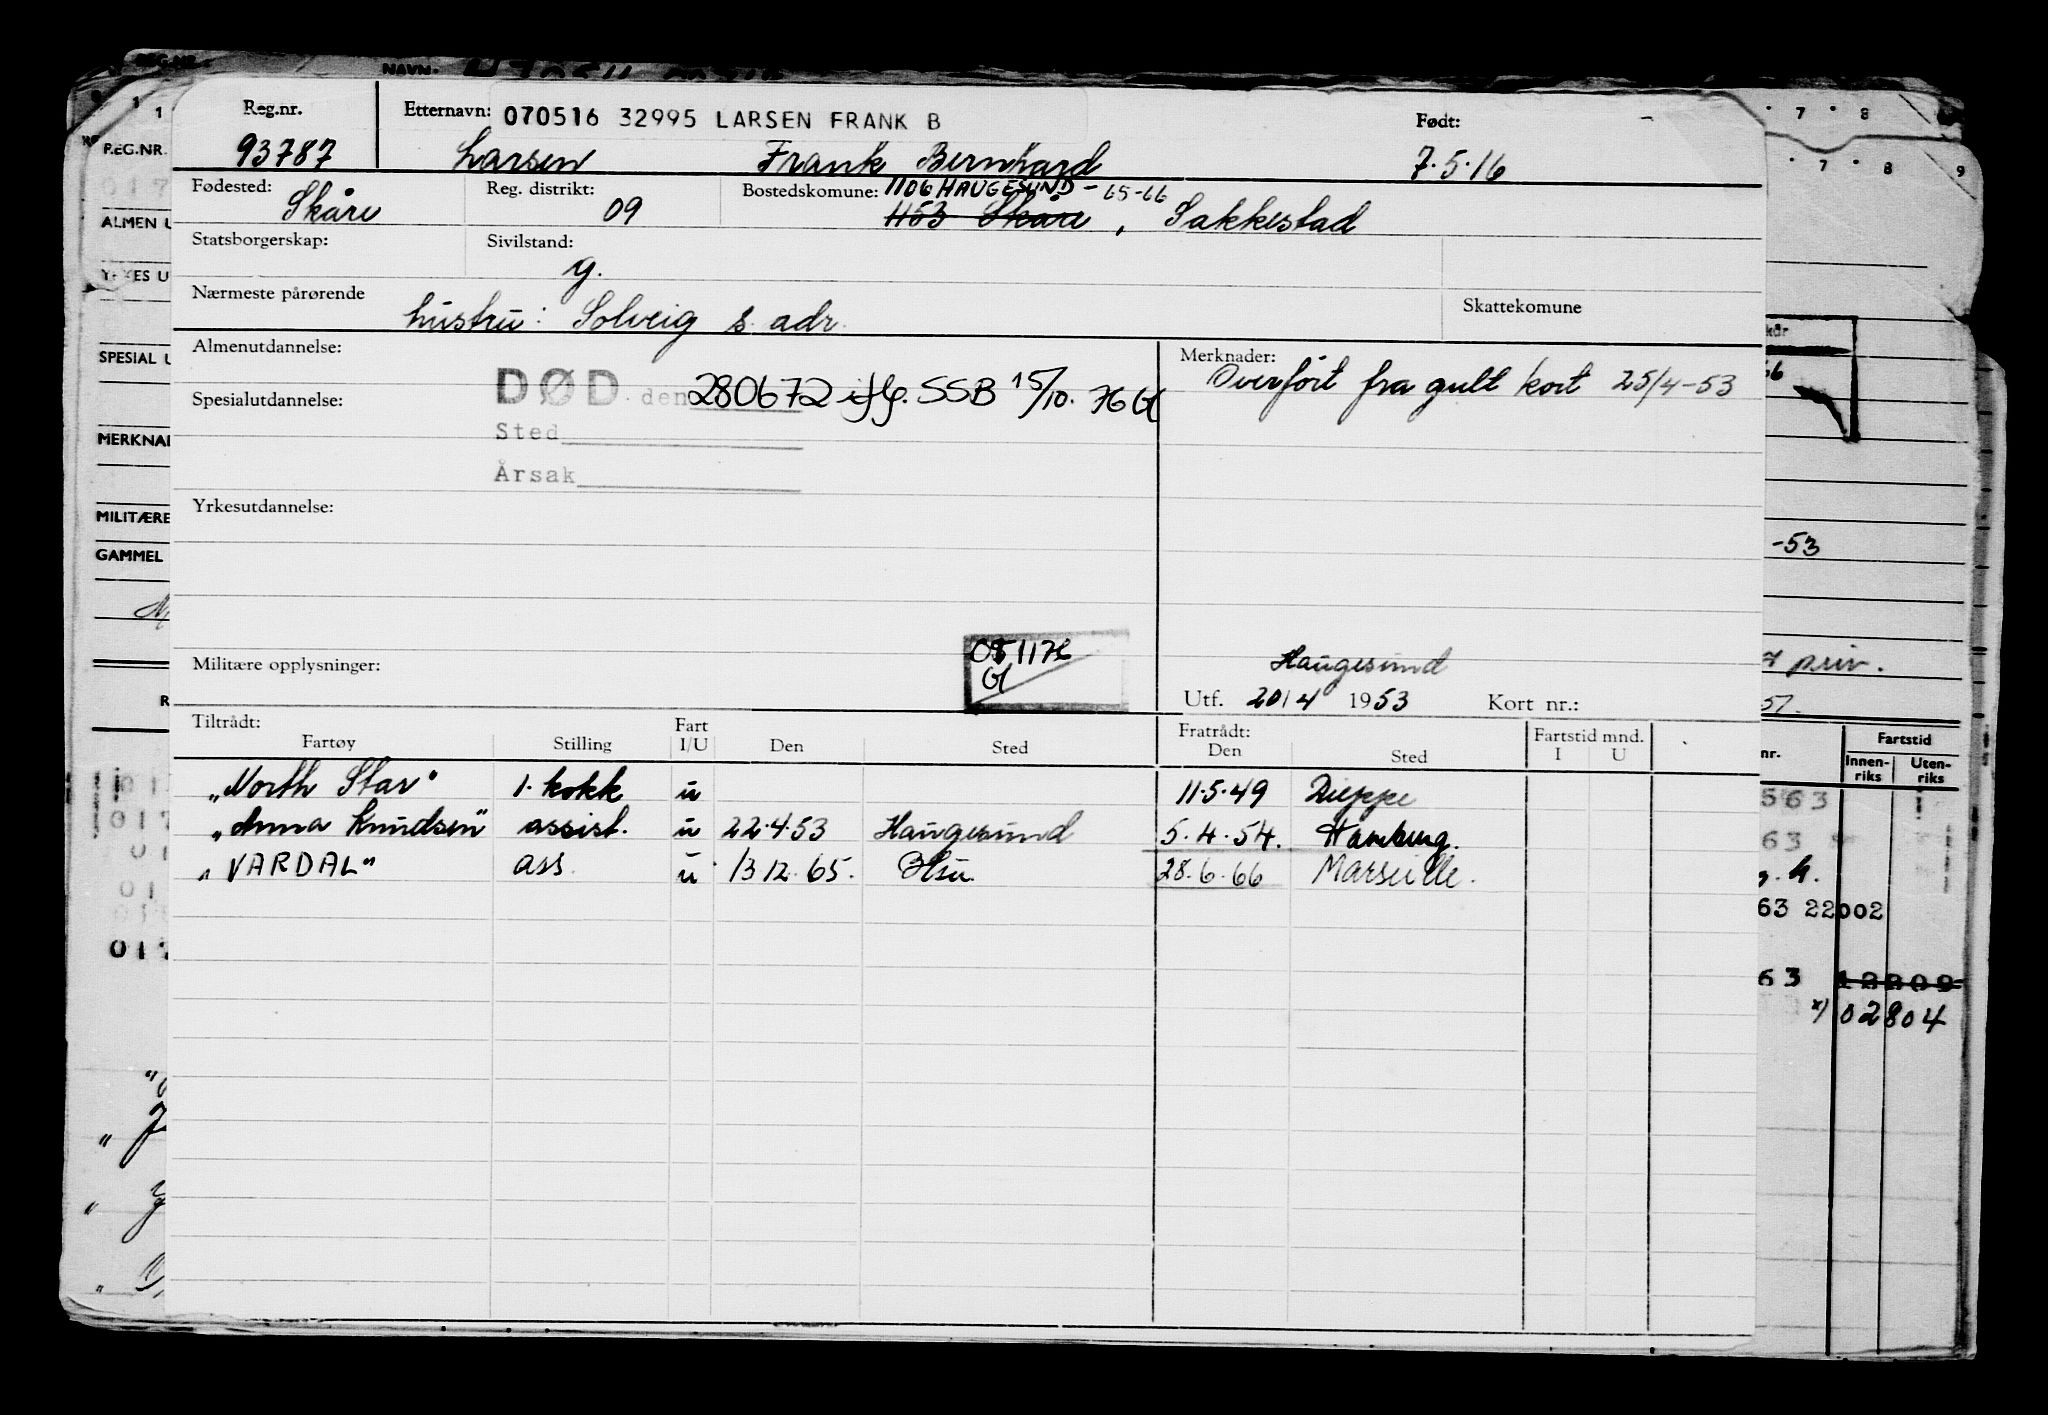 Reg.nr. Etternavn: 070516 32995 LARSEN FRANK B Født:
93787 Larsen Frank Bernhard 7.5.16
Fødested: Reg. distrikt: Bostedskomune: 1106 HAUGESUND - 65-66
Skåre 09 1153 Skåre, Sakkestad
Statsborgerskap: Sivilstand:
g.
Nærmeste pårørende Skattekomune
hustru: Solveig s. adr.
Almenutdannelse: Merknader:
Overført fra gult kort 25/4-53
Spesialutdannelse: DØD. den 280672 iflg. SSB 15/10. 76
Sted
Årsak
Yrkesutdannelse:
Militære opplysninger:
Haugesund
Utf. 20/4 1953 Kort nr.:
Tiltrådt: Fratrådt: Fartstid mnd.
Fartøy Stilling Fart I/U Den Sted Den Sted I U
"North Star" 1. kokk u 11.5.49 Dieppe
"Anna Knudsen" assist. u 22.4.53 Haugesund 5.4.54. Hamburg.
"VARDAL" ass. u 13.12.65. 28.6.66 Marseille.
REG.NR.
ALMEN U
YRKES U
SPESIAL U
MERKNAD
MILITÆRE
GAMMEL
7 8
7 8 9
-53
priv.
57.
nr. Fartstid
Innen-riks Uten-riks
563
63
63 22002
63 12209
x) 02804